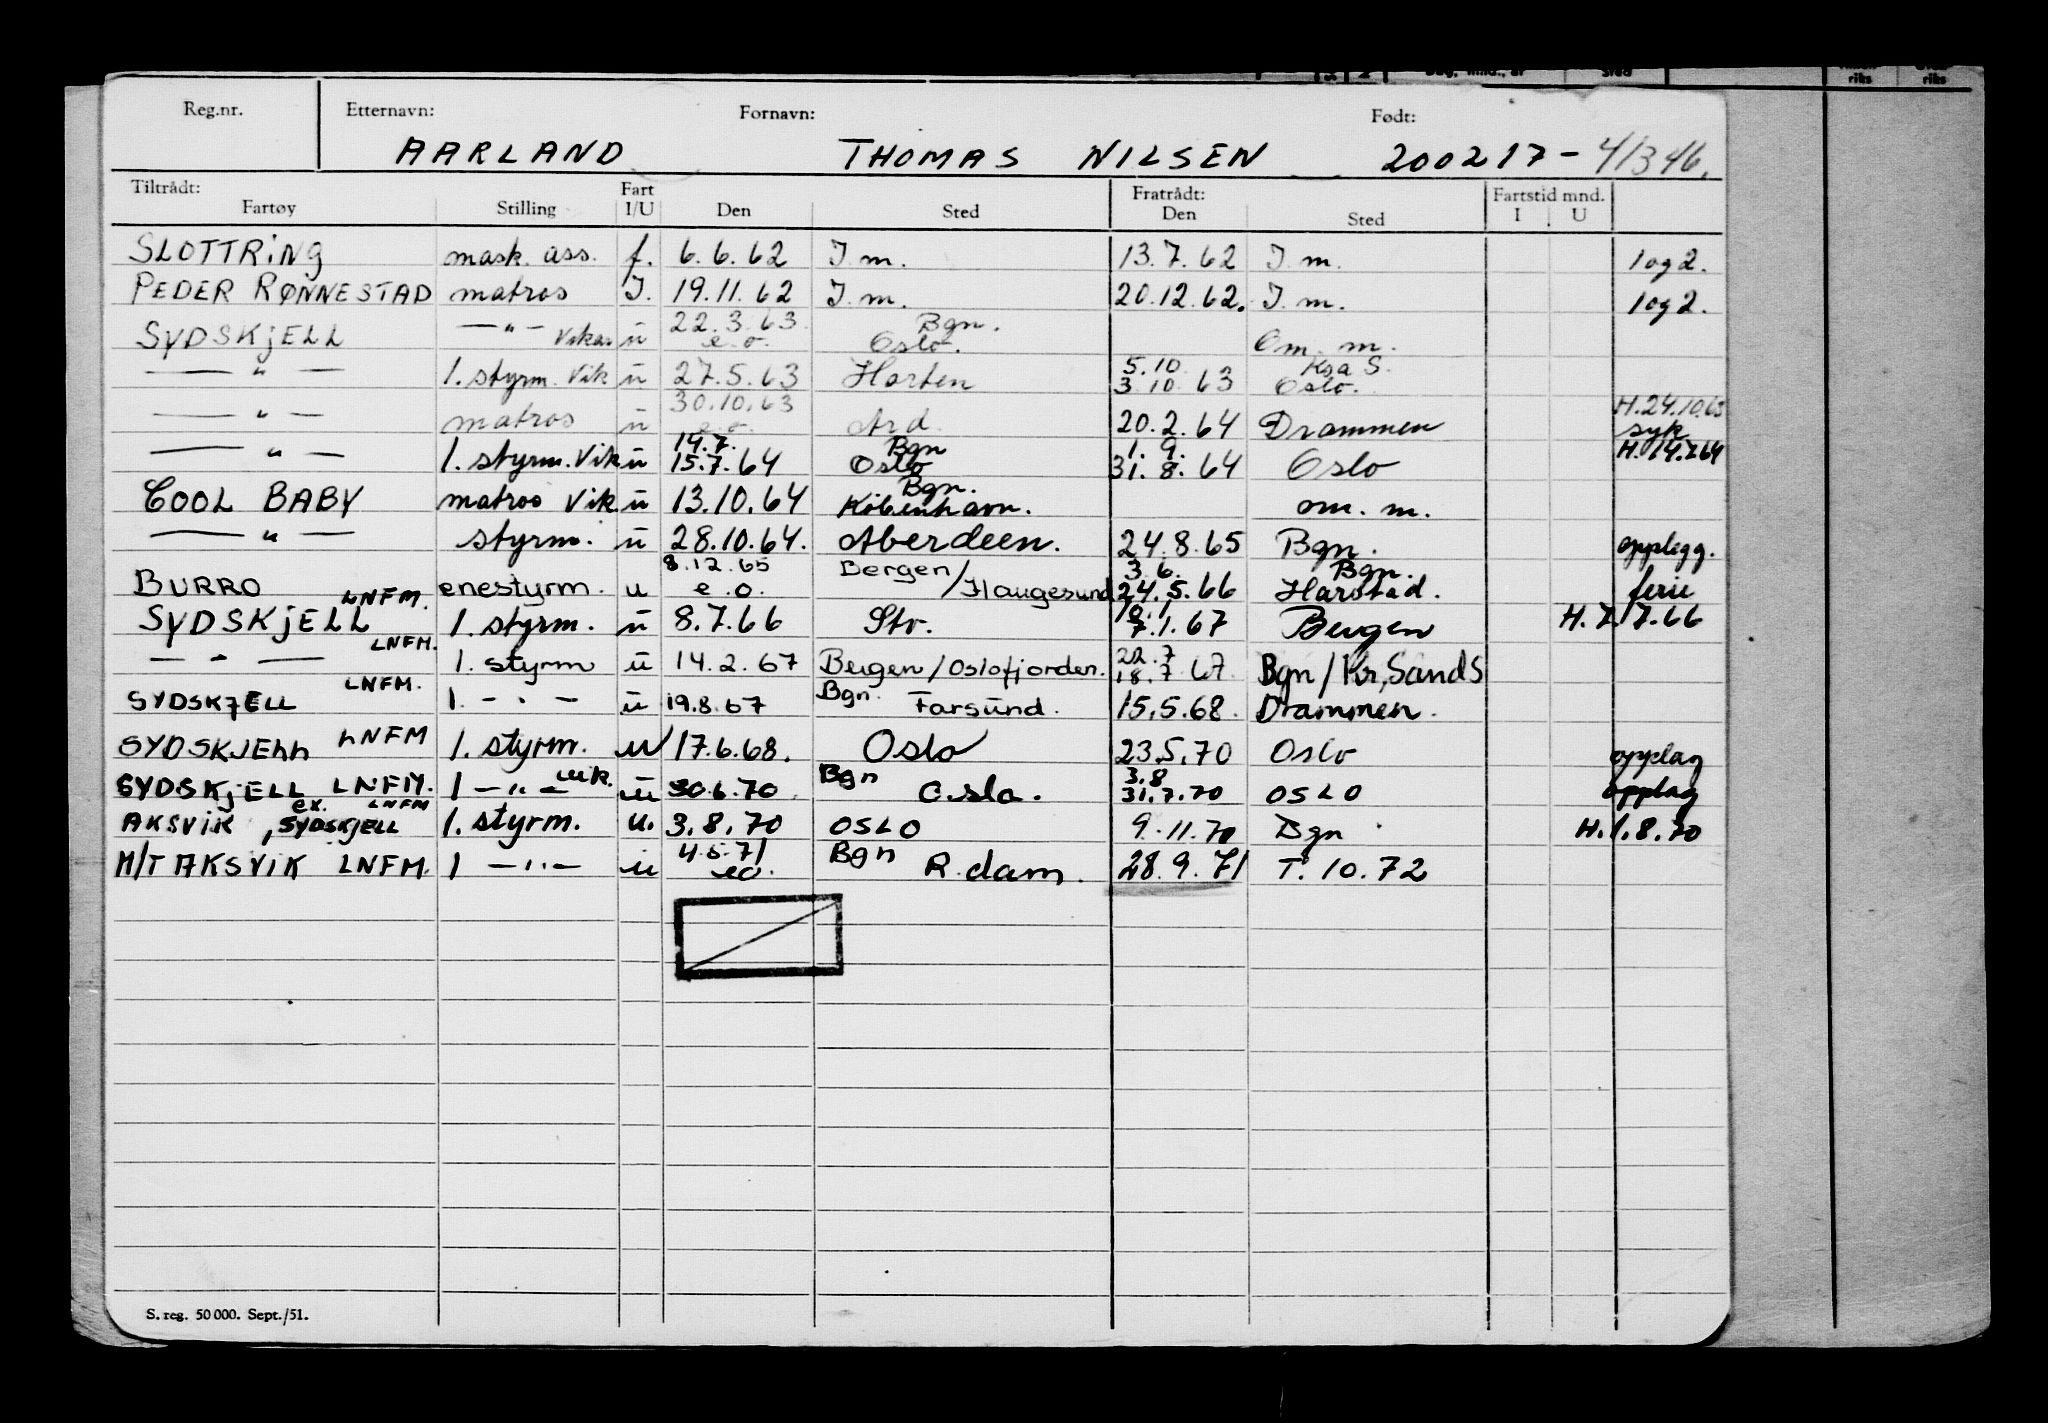 Reg.nr. Etternavn: Fornavn: Født:
AARLAND THOMAS NILSEN 200217-41346.
Tiltrådt: Fart Fratrådt: Fartstid mnd.
Fartøy Stilling I/U Den Sted Den Sted I U
SLOTTRING mask. ass. f. 6.6.62 I.m. 13.7.62 I.m. 1 og 2.
PEDER RØNNESTAD matros I. 19.11.62 I.m. 20.12.62. I.m. 1 og 2.
22.3.63. Bgn.
SYDSKJELL — " — u e.o. Oslo. Om. m.
5.10 Ksa S.
— " — 1. styrm. Vik u 27.5.63 Horten 3.10.63 Oslo.
30.10.63 H.24.10.63
— " — matros u e.o. Ard. 20.2.64 Drammen syk
14.7. Bgn 1.9. H.14.7.64
— " — 1. styrm. Vik u 15.7.64 Oslo 31.8.64 Oslo
Bgn.
COOL BABY matros Vik. u 13.10.64 København. om. m.
— " — styrm. u 28.10.64. Aberdeen. 24.8.65 Bgn. opplegg.
8.12.65 3.6. Bgn.
BURRO enestyrm. u e.o. Bergen/Haugesund 24.5.66 Harstad. ferie
SYDSKJELL LNFM. 1. styrm. u 8.7.66 Stv. 7.1.67 Bergen H.7.7.66
22.7
— " — LNFM. 1. styrm u 14.2.67 Bergen/Oslofjorden. 18.7.67 Bgn/Kr,Sand S
SYDSKJELL LNFM. 1. - " - u 19.8.67 Bgn. Farsund. 15.5.68. Drammen.
SYDSKJELL LNFM 1. styrm. u 17.6.68. Oslo 23.5.70 Oslo opplag
3.8
SYDSKJELL LNFM. 1 — " — vik. u 30.6.70 Bgn Oslo. 31.7.70 OSLO opplag
AKSVIK, ex. SYDSKJELL LNFM 1. styrm. u. 3.8.70 OSLO 9.11.70 Bgn H.1.8.70
4.5.71
M/T AKSVIK LNFM. 1 — " — u eo. Bgn R.dam. 28.9.71 T. 10.72
S. reg. 50 000. Sept./51.